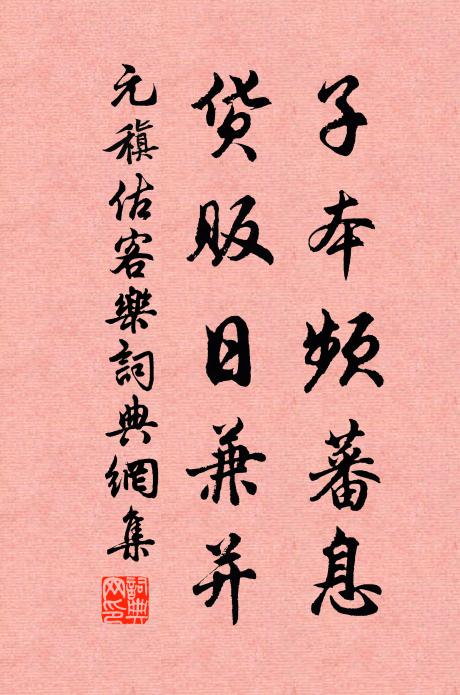 子本頻蕃息
貨販日兼并
元稹估客樂詞典網集
詞典網印